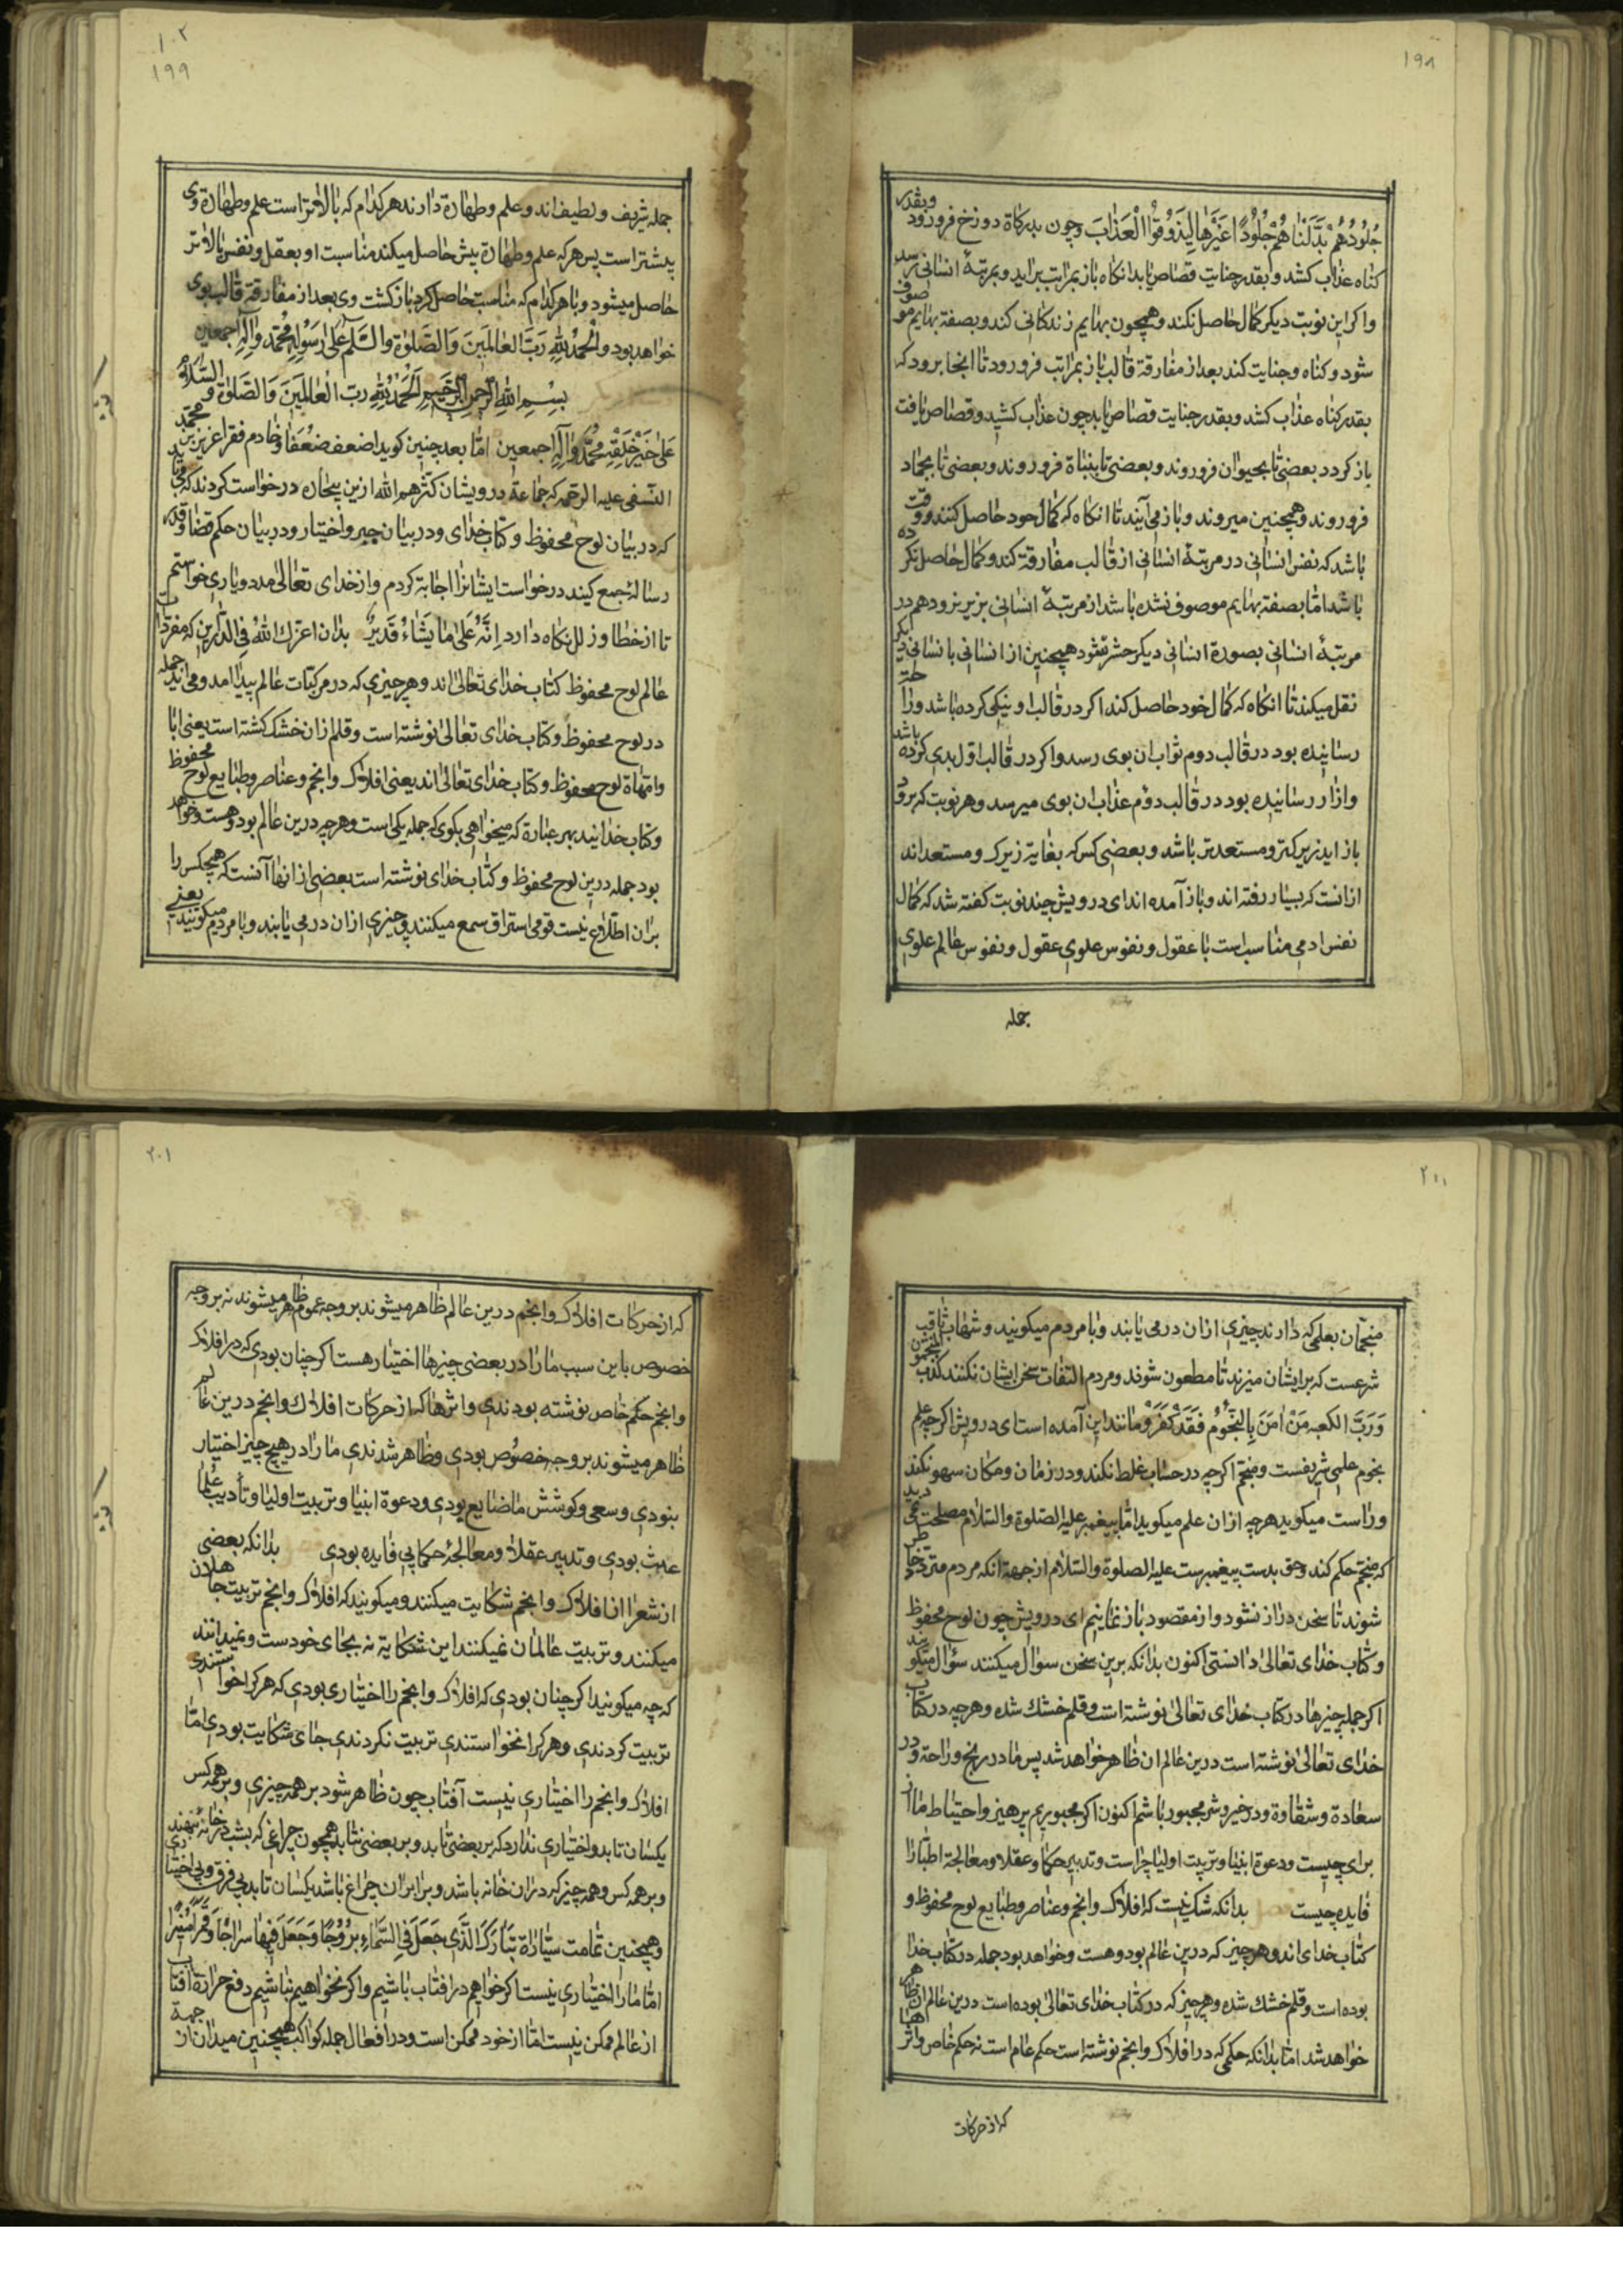 ۱۹۸
جُلُودُهُمْ بَدَّلْنَاهُمْ جُلُوْدًا غَيْرَهَا لِيَذُوْقُوا الْعَذَابَ وچون بدرکاة دوزخ فرورود وبقدر
کناه عذاب کشد وبقدر جنایت قصاص یابد انکاه باز بمراتب براید وبمرتبهٔ انسانی رسد
واکر این نوبت دیکر کمال حاصل نکند وهمچون بهایم زندکانی کند وبصفة بهایم موصوف
شود وکناه وجنایت کند بعد از مفارقة قالب باز بمراتب فرورود تا انجا برود که
بقدر کناه عذاب کشد وبقدر جنایت قصاص یابد چون عذاب کشید وقصاص یافت
باز کردد بعضی تا بحیوان فروروند وبعضی تا بنباة فروروند وبعضی تا بجماد
فروروند وهمچنین میروند وباز می آیند تا انکاه که کمال خود حاصل کنند ووقت
باشد که نفس انسانی در مرتبهٔ انسانی از قالب مفارقة کند وکمال حاصل نکرده
باشد امّا بصفة بهایم موصوف نشده باشد از مرتبهٔ انسانی بزیر نرود هم در
مرتبهٔ انسانی بصورة انسانی دیکر حشر شود همچنین از انسانی بانسانی دیکر
نقل میکند تا انکاه که کمال خود حاصل کند اکر در قالب او نیکی کرده باشد وراحتی
رسانیده بود در قالب دوم ثواب ان بوی رسد واکر در قالب اول بدی کرده باشد
وازار رسانیده بود در قالب دوّم عذاب ان بوی میرسد وهر نوبت که برود
باز اید زیرکتر ومستعدتر باشد وبعضی کس که بغایة زیرک ومستعداند
ازانست که بسیار رفته اند وباز آمده اند ای درویش چند نوبت کفته شد که کمال
نفس ادمی مناسب است با عقول ونفوس علوی عقول ونفوس عالم علوی
جمله
۱۰۲
۱۹۹
جمله شریف ولطیف اند وعلم وطهارة دارند هر کدام که بالاتر است علم وطهارة وی
بیشتر است پس هر که علم وطهارة بیش حاصل میکند مناسبت او بعقل ونفس بالاتر
حاصل میشود وبا هر کدام که مناسبت حاصل کرد باز کشت وی بعد از مفارقة قالب بوی
خواهد بود والْحمدُ للهِ رَبِّ العالمَينَ وَالصَّلوٰة والسَّلم عَلی رَسُولِهِ مُحَمَّد وآلِهِ اجمعین
بِسْمِ اللهِ الرَّحمنِ الرَّحیمِ اَلْحَمْدُ للهِ ربِّ الْعٰالَمِیْنَ وَالصَّلاوٰة وَ السَّلامُ
عَلیٰ خَیْرِ خَلْقِهِ مُحَمَّدٍ وآلِهِ اجمعین امّا بعد چنین کوید اضعف ضعفا وخادم فقرا عزیز بن محمّد
النّسفی علیه الرحمه که جماعة درویشان کثّرهم الله ازین بیچاره درخواست کردند که می باید
که در بیان لوح محفوظ وکتاب خدای ودر بیان جبر واختیار ودر بیان حکم قضا وقدر
رسالهٔ جمع کیند درخواست ایشانرا اجابة کردم واز خدای تعالی مدد ویاری خواستم
تا از خطا وزلل نکاه دارد اِنَّهُ عَلیٰ مٰا یَشٰاءُ قَدیرٌ بدان اعزّک اللهُ فِی الدّٰارین که مفردات
عالم لوح محفوظ کتاب خدای تعالی اند وهر چیزی که در مرکبات عالم پیدا امد ومی اید جمله
در لوح محفوظ وکتاب خدای تعالی نوشته است وقلم زان خشک کشته است یعنی ابا
وامّهاة لوح محفوظ وکتاب خدای تعالی اند یعنی افلاک وانجم وعناصر وطبایع لوح محفوظ
وکتاب خدایند بهر عبارة که میخواهی بکوی که جمله یکی است وهر چه درین عالم بود وهست وخواهد
بود جمله درین لوح محفوظ وکتاب خدای نوشته است بعضی از انها آنست که هیچکس را
بران اطلاع نیست قومی استراق سمع میکنند وچیزی ازان در می یابند وبا مردم میکویند یعنی
۲۰۰
منجّمان بعلمی که دارند چیزی ازان در می یابند وبا مردم میکویند وشهاب ثاقب
شرعست که بر ایشان میزند تا مطعون شوند ومردم التفات بسخن ایشان نکنند کذب المنجّمون
وَرَبِّ الکعبه مَنْ اٰمَنَ بِالنُّجُوْمُ فَقَدْ کَفَرَ ومانند این آمده است ای درویش اکر چه علم
نجوم علمی شریفست ومنجّم اکر چه در حساب غلط نکند ودر زمان ومکان سهو نکند
وراست میکوید هر چه ازان علم میکوید امّا پیغمبر علیه الصّلوة والسّلام مصلحت نمی دید
که منجّم حکم کند وحق بدست پیغمبرست علیه الصلوة والسّلام از جهة انکه مردم متردّد خاطر
شوند تا سخن دراز نشود واز مقصود باز نمانیم ای درویش چون لوح محفوظ
وکتاب خدای تعالی دانستی اکنون بدانکه برین سخن سوال میکنند سؤال میکویند
اکر جمله چیزها در کتاب خدای تعالی نوشته است وقلم خشک شده وهر چه در کتاب
خدای تعالی نوشته است درین عالم ان ظاهر خواهد شد پس ما در رنج وراحة ودر
سعادة وشقاوة ودر خیر وشر مجبور باشم اکنون اکر مجبوریم پرهیز واحتیاط ما از
برای چیست ودعوة انبیا وتربیت اولیا چراست وتدبیر حکما وعقلا ومعالجة اطبّا را
فایده چیست بدانکه شک نیست که افلاک وانجم وعناصر وطبایع لوح محفوظ و
کتاب خدای اند وهر چیز که درین عالم بود وهست وخواهد بود جمله در کتاب خدا
بوده است وقلم خشک شده وهر چیز که در کتاب خدای تعالی بوده است درین عالم ان ظاهر
خواهد شد امّا بدانکه حکمی که در افلاک وانجم نوشته است حکم عام است نه حکم خاص واثرها
که از حرکات
۲۰۱
که از حرکات افلاک وانجم درین عالم ظاهر میشوند بر وجه عموم ظاهر میشوند نه بر وجه
خصوص باین سبب ما را در بعضی چیزها اختیار هست اکر چنان بودی که در افلاک
وانجم حکم خاص نوشته بودندی واثرها که از حرکات افلاک وانجم درین عالم
ظاهر میشوند بر وجه خصُوص بودی وظاهر شدندی ما را در هیچ چیز اختیار
بنودی وسعی وکوشش ما ضایع بودی ودعوة انبیا وتربیت اولیا وتأدیب علما
عبث بودی وتدبیر عقلا ومعالجهٔ حکما بی فایده بودی بدانکه بعضی
از شعرا از افلاک وانجم شکایت میکنند ومیکویند که افلاک وانجم تربیت جاهلان
میکنند وتربیت عالمان نمیکنند این شکایة نه بجای خودست ونمیدانند
که چه میکویند اکر چنان بودی که افلاک وانجم را اختیاری بودی که هر کرا خواستندی
تربیت کردندی وهر کرا نخواستندی تربیت نکردندی جای شکایت بودی امّا
افلاک وانجم را اختیاری نیست آفتاب چون ظاهر شود بر همه چیزی وبر همه کس
یکسان تابد واختیاری ندارد که بر بعضی تابد وبر بعضی نتابد همچون چراغی که بشب در خانه نهند
وبر همه کس وهمه چیز که دران خانه باشد وبرابر ان چراغ باشد یکسان تابد بی فرق وبی اختیاری
وهمچنین تمامت سیّاراة تَبٰارَکَ الَّذَی جَعَلَ فِی السَّمٰاءِ بُرُوْجًا وَجَعَلَ فِیْهٰا سِرٰاجًا وَقَمَرًا مُنِیْرًا
امّا ما را اختیاری نیست اکر خواهیم در افتاب باشیم واکر نخواهیم نباشیم دفع حرارة افتاب
از عالم ممکن نیست امّا از خود ممکن است ودر افعال جمله کواکب همچنین میدان از جهة
ان